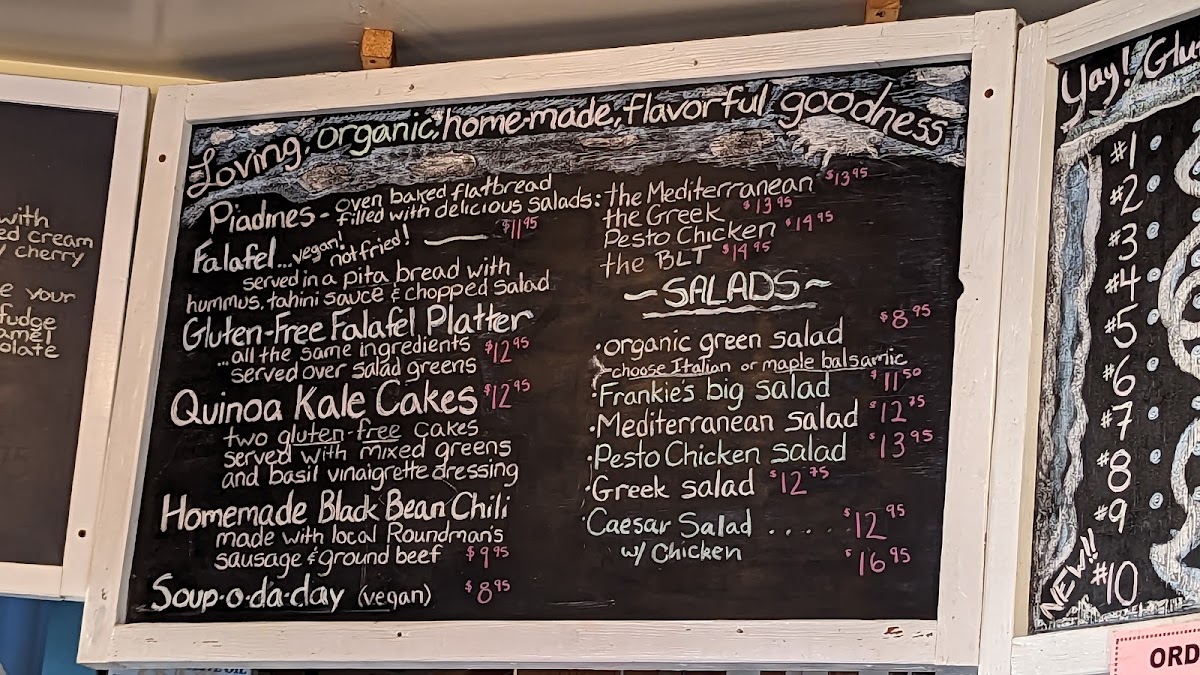 with
ed cream
y cherry
e your
fudge
amel
olate
Loving, organic, home-made, flavorful goodness
Piadines - oven baked flatbread
filled with delicious salads:
the Mediterranean $13.95
the Greek $13.95
Pesto Chicken $14.95
the BLT $14.95
Falafel... vegan! not fried! $11.95
served in a pita bread with
hummus, tahini sauce & chopped salad
Gluten-Free Falafel Platter
...all the same ingredients $12.95
served over salad greens
Quinoa Kale Cakes $12.95
two gluten-free cakes
served with mixed greens
and basil vinaigrette dressing
Homemade Black Bean Chili
made with local Roundman's
sausage & ground beef $9.95
Soup-o-da-day (vegan) $8.95
~SALADS~
•organic green salad $8.95
choose Italian or maple balsamic
•Frankie's big salad $11.50
•Mediterranean salad $12.75
•Pesto Chicken salad $13.95
•Greek salad $12.75
Caesar Salad .... $12.95
w/ Chicken $16.95
Yay! Glu
#1
#2
#3
#4
#5
#6
#7
#8
#9
NEW!! #10
ORD